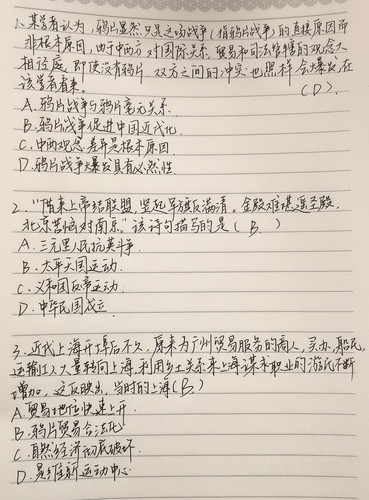 1、某学者认为，鸦片显然只是这场战争(指鸦片战争)的直接原因而
非根本原因，由于中西方对国际关系、贸易和司法管辖的观念大
相径庭，即使没有鸦片，双方之间的冲突也照样会爆发，在
该学者看来。 (D)
A、鸦片战争与鸦片毫无关系.
B、鸦片战争促进中国近代化.
C、中西观念差异是根本原因
D、鸦片战争爆发具有必然性
2、“借来上帝结联盟，竖起军旗反满清。金殿难堪遥圣殿，
北京苦恼对南京，”该诗句描写的是 ( B )
A、三元里人民抗英斗争.
B、太平天国运动.
C、义和团反帝运动.
D、中华民国成立.
3、近代上海开埠后不久，原来为广州贸易服务的商人、买办、船民，
运输工人大量转向上海，利用乡土关系来上海谋求职业的游民不断
增加，这反映出，当时的上海(B)
A、贸易地位快速上升
B、鸦片贸易合法化
C、自然经济彻底破坏
D、是维新运动中心